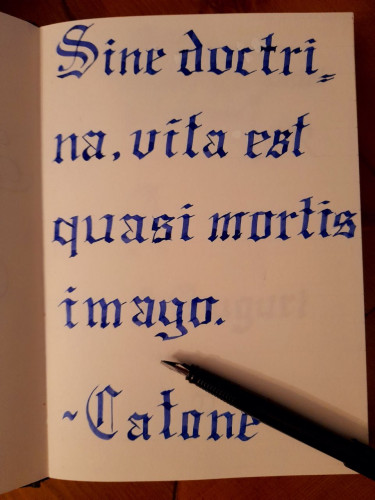 Sine doctri=
na, vita est
quasi mortis
imago.
~Catone